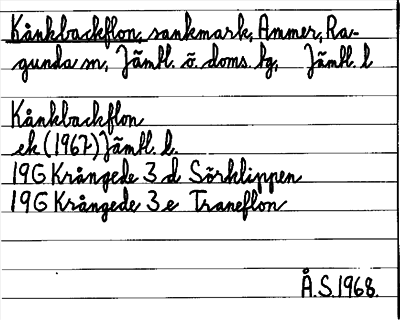 Kånkbackflon, sankmark, Ammer, Ra-
gunda sn, Jämtl. ö. doms. hg, Jämtl. l
Kånkbackflon
ek (1967) Jämtl. l.
19G Krångede 3 d Sörklippen
19G Krångede 3 e Traneflon
Å.S. 1968.